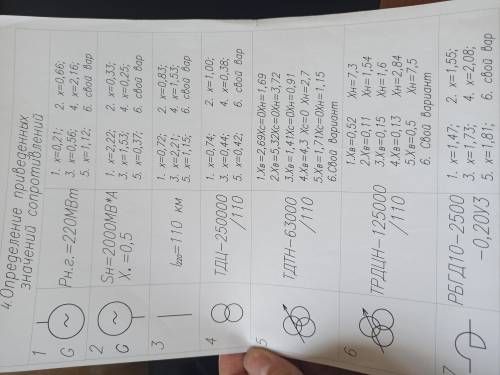 4.Определение приведенных
значений сопротивлений
1
G ~
Рн.г.=220МВт
1. х=0,21; 2. х=0,66;
3. х=0,56; 4. х=2,16;
5. х=1,12; 6. свой вар
2
G ~
Sн=2000МВ*А
X*=0,5
1. х=2,22; 2. х=0,33;
3. х=1,53; 4. х=0,25;
5. х=0,37; 6. свой вар
3
l220=110 км
1. х=0,72; 2. х=0,83;
3. х=2,21; 4. х=1,53;
5. х=1,15; 6. свой вар
4
ТДЦ-250000
/110
1. х=0,74; 2. х=1,00;
3. х=0,44; 4. х=0,38;
5. х=0,42; 6. свой вар
5
ТДТН-63000
/110
1.Хв=2,69Хс=0Хн=1,69
2.Хв=5,32Хс=0Хн=3,72
3.Хв=1,41Хс=0Хн=0,91
4.Хв=4,3 Хс=0 Хн=2,7
5.Хв=1,71Хс=0Хн=1,15
6.Свой вариант
6
ТРДЦН-125000
/110
1.Хв=0,52 Хн=7,3
2.Хв=0,11 Хн=1,54
3.Хв=0,15 Хн=1,6
4.Хв=0,13 Хн=2,84
5.Хв=0,5 Хн=7,5
6. Свой вариант
7
РБГД10-2500
-0,20У3
1. х=1,47; 2. х=1,55;
3. х=1,73; 4. х=2,08;
5. х=1,81; 6. свой вар